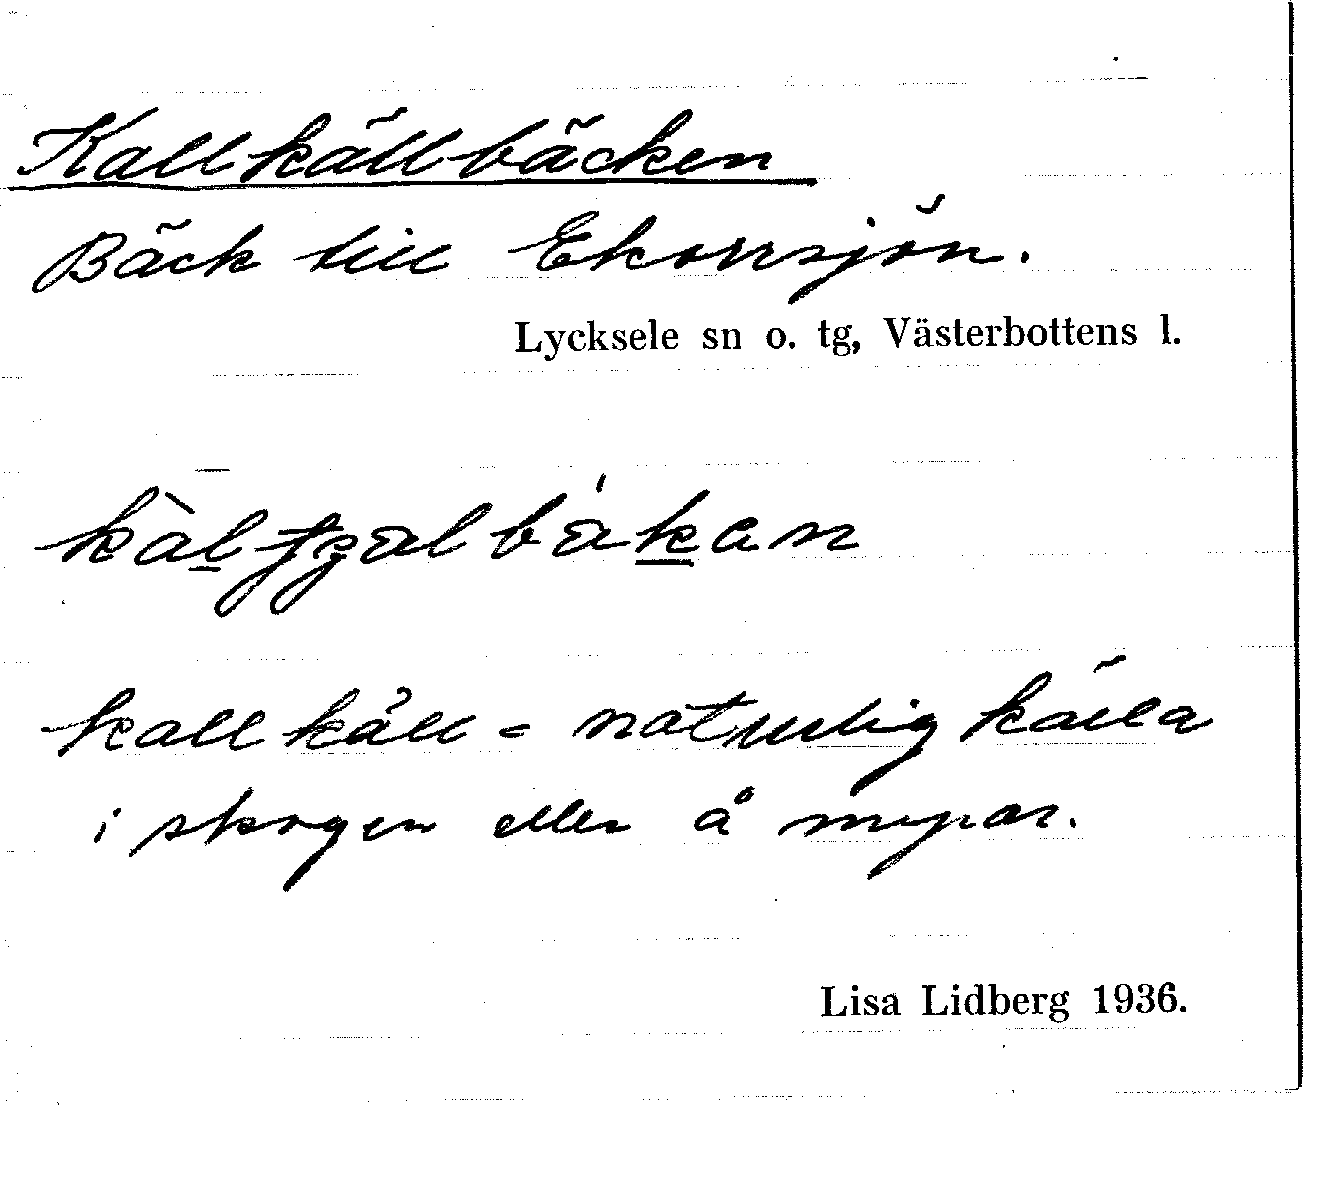 Kallkällbäcken
Bäck till Ekorrsjön.
Lycksele sn o. tg, Västerbottens l.
kallkäll = naturlig källa
i skogen eller å myrar.
Lisa Lidberg 1936.